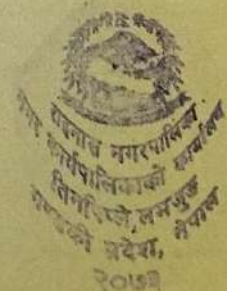 राइनास नगरपालिका
नगर कार्यपालिकाको कार्यालय
तिनपिप्ले, लमजुङ
गण्डकी प्रदेश, नेपाल
२०७३